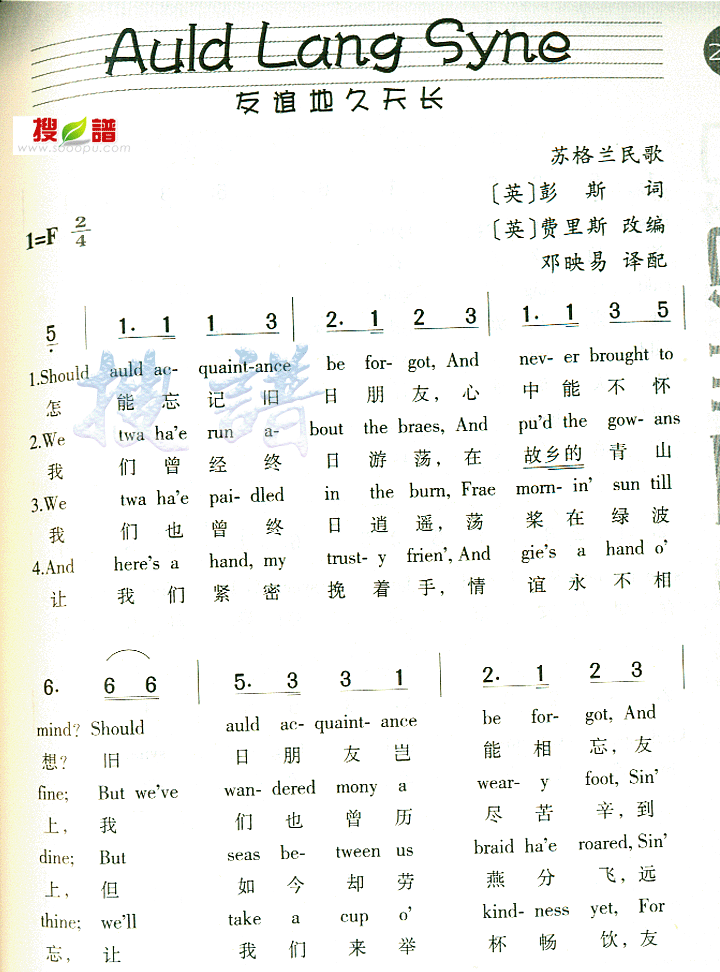 Auld Lang Syne
友谊地久天长
搜谱
www.sooopu.com
苏格兰民歌
[英]彭 斯 词
[英]费里斯 改编
邓映易 译配
1=F 2/4
5 | 1. 1 1 3 | 2. 1 2 3 | 1. 1 3 5 |
1.Should auld ac- quaint-ance be for- got, And nev- er brought to
怎 能 忘 记 旧 日 朋 友, 心 中 能 不 怀
2.We twa ha'e run a- bout the braes, And pu'd the gow- ans
我 们 曾 经 终 日 游 荡, 在 故乡的 青 山
3.We twa ha'e pai- dled in the burn, Frae morn- in' sun till
我 们 也 曾 终 日 逍 遥, 荡 桨 在 绿 波
4.And here's a hand, my trust- y frien', And gie's a hand o'
让 我 们 紧 密 挽 着 手, 情 谊 永 不 相
搜譜
6. 6 6 | 5. 3 3 1 | 2. 1 2 3 |
mind? Should auld ac- quaint- ance be for- got, And
想? 旧 日 朋 友 岂 能 相 忘, 友
fine; But we've wan- dered mony a wear- y foot, Sin'
上, 我 们 也 曾 历 尽 苦 辛, 到
dine; But seas be- tween us braid ha'e roared, Sin'
上, 但 如 今 却 劳 燕 分 飞, 远
thine; we'll take a cup o' kind- ness yet, For
忘, 让 我 们 来 举 杯 畅 饮, 友